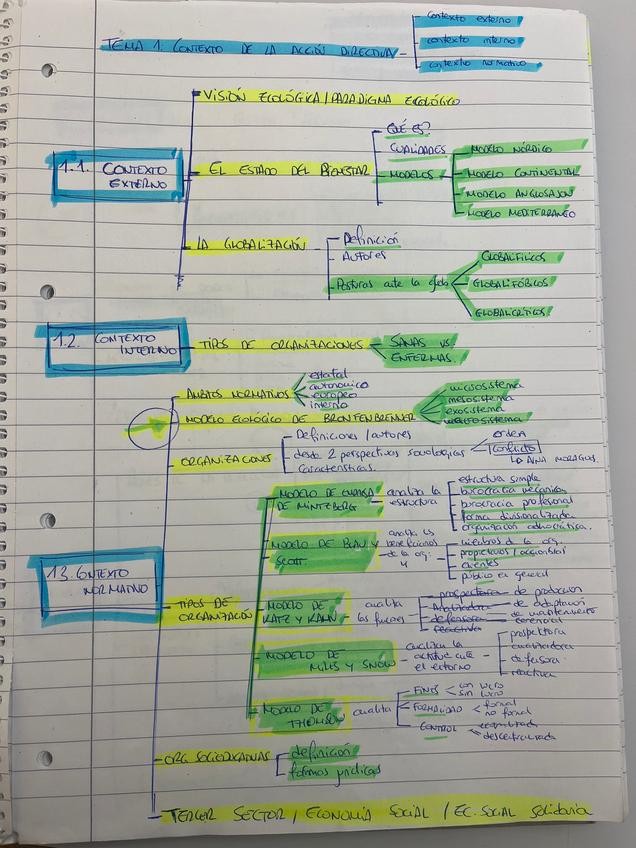 TEMA 1. CONTEXTO DE LA ACCIÓN DIRECTIVA
contexto externo
contexto interno
contexto normativo
1.1. CONTEXTO EXTERNO
VISIÓN ECOLÓGICA / PARADIGMA ECOLÓGICO
EL ESTADO DEL BIENESTAR
QUÉ ES?
CUALIDADES
MODELOS
MODELO NÓRDICO
MODELO CONTINENTAL
MODELO ANGLOSAJON
MODELO MEDITERRANEO
LA GLOBALIZACIÓN
Definición
Autores
Posturas ante la glob
GLOBALIFILICOS
GLOBALIFÓBICOS
GLOBALICRÍTICOS
1.2. CONTEXTO INTERNO
TIPOS DE ORGANIZACIONES
SANAS VS
ENFERMAS.
13. CONTEXTO NORMATIVO
ÁMBITOS NORMATIVOS
estatal
autonómico
europeo
interno
MODELO ECOLÓGICO DE BRONFENBRENNER
microsistema
mesosistema
exosistema
macrosistema
ORGANIZACIONES
Definiciones / autores
desde 2 perspectivas sociológicas
orden
conflicto
↳ AINA MORAGUS.
características.
TIPOS DE ORGANIZACIÓN
MODELO DE
DE MINTZBERG
analiza la
estructura
estructura simple
burocratia mecánica
burocracia profesional
forma divisionalizada
organización adhocrática.
MODELO DE BLAU Y
SCOTT.
analiza los
beneficiarios
de la org.
4
miembros de la org.
propietarios / accionistas
clientes
público en general
MODELO DE
KATZ Y KAHN
analiza
las funciones
prospectora de producción
Analizadora de adaptación
defensora de mantenimiento
reactiva gerencial
MODELO DE
MILES Y SNOW
analizan la
actitud ante
el entorno
prospectora
analizadora
defensora
reactiva
MODELO DE
THOMSON
analiza
FINES
con lucro
sin lucro
FORMALIDAD
formal
no formal
CONTROL
descentralizada
ORG SOCIOEDUCATIVAS
definición
formas jurídicas
TERCER SECTOR / ECONOMÍA SOCIAL / EC. SOCIAL Solidaria